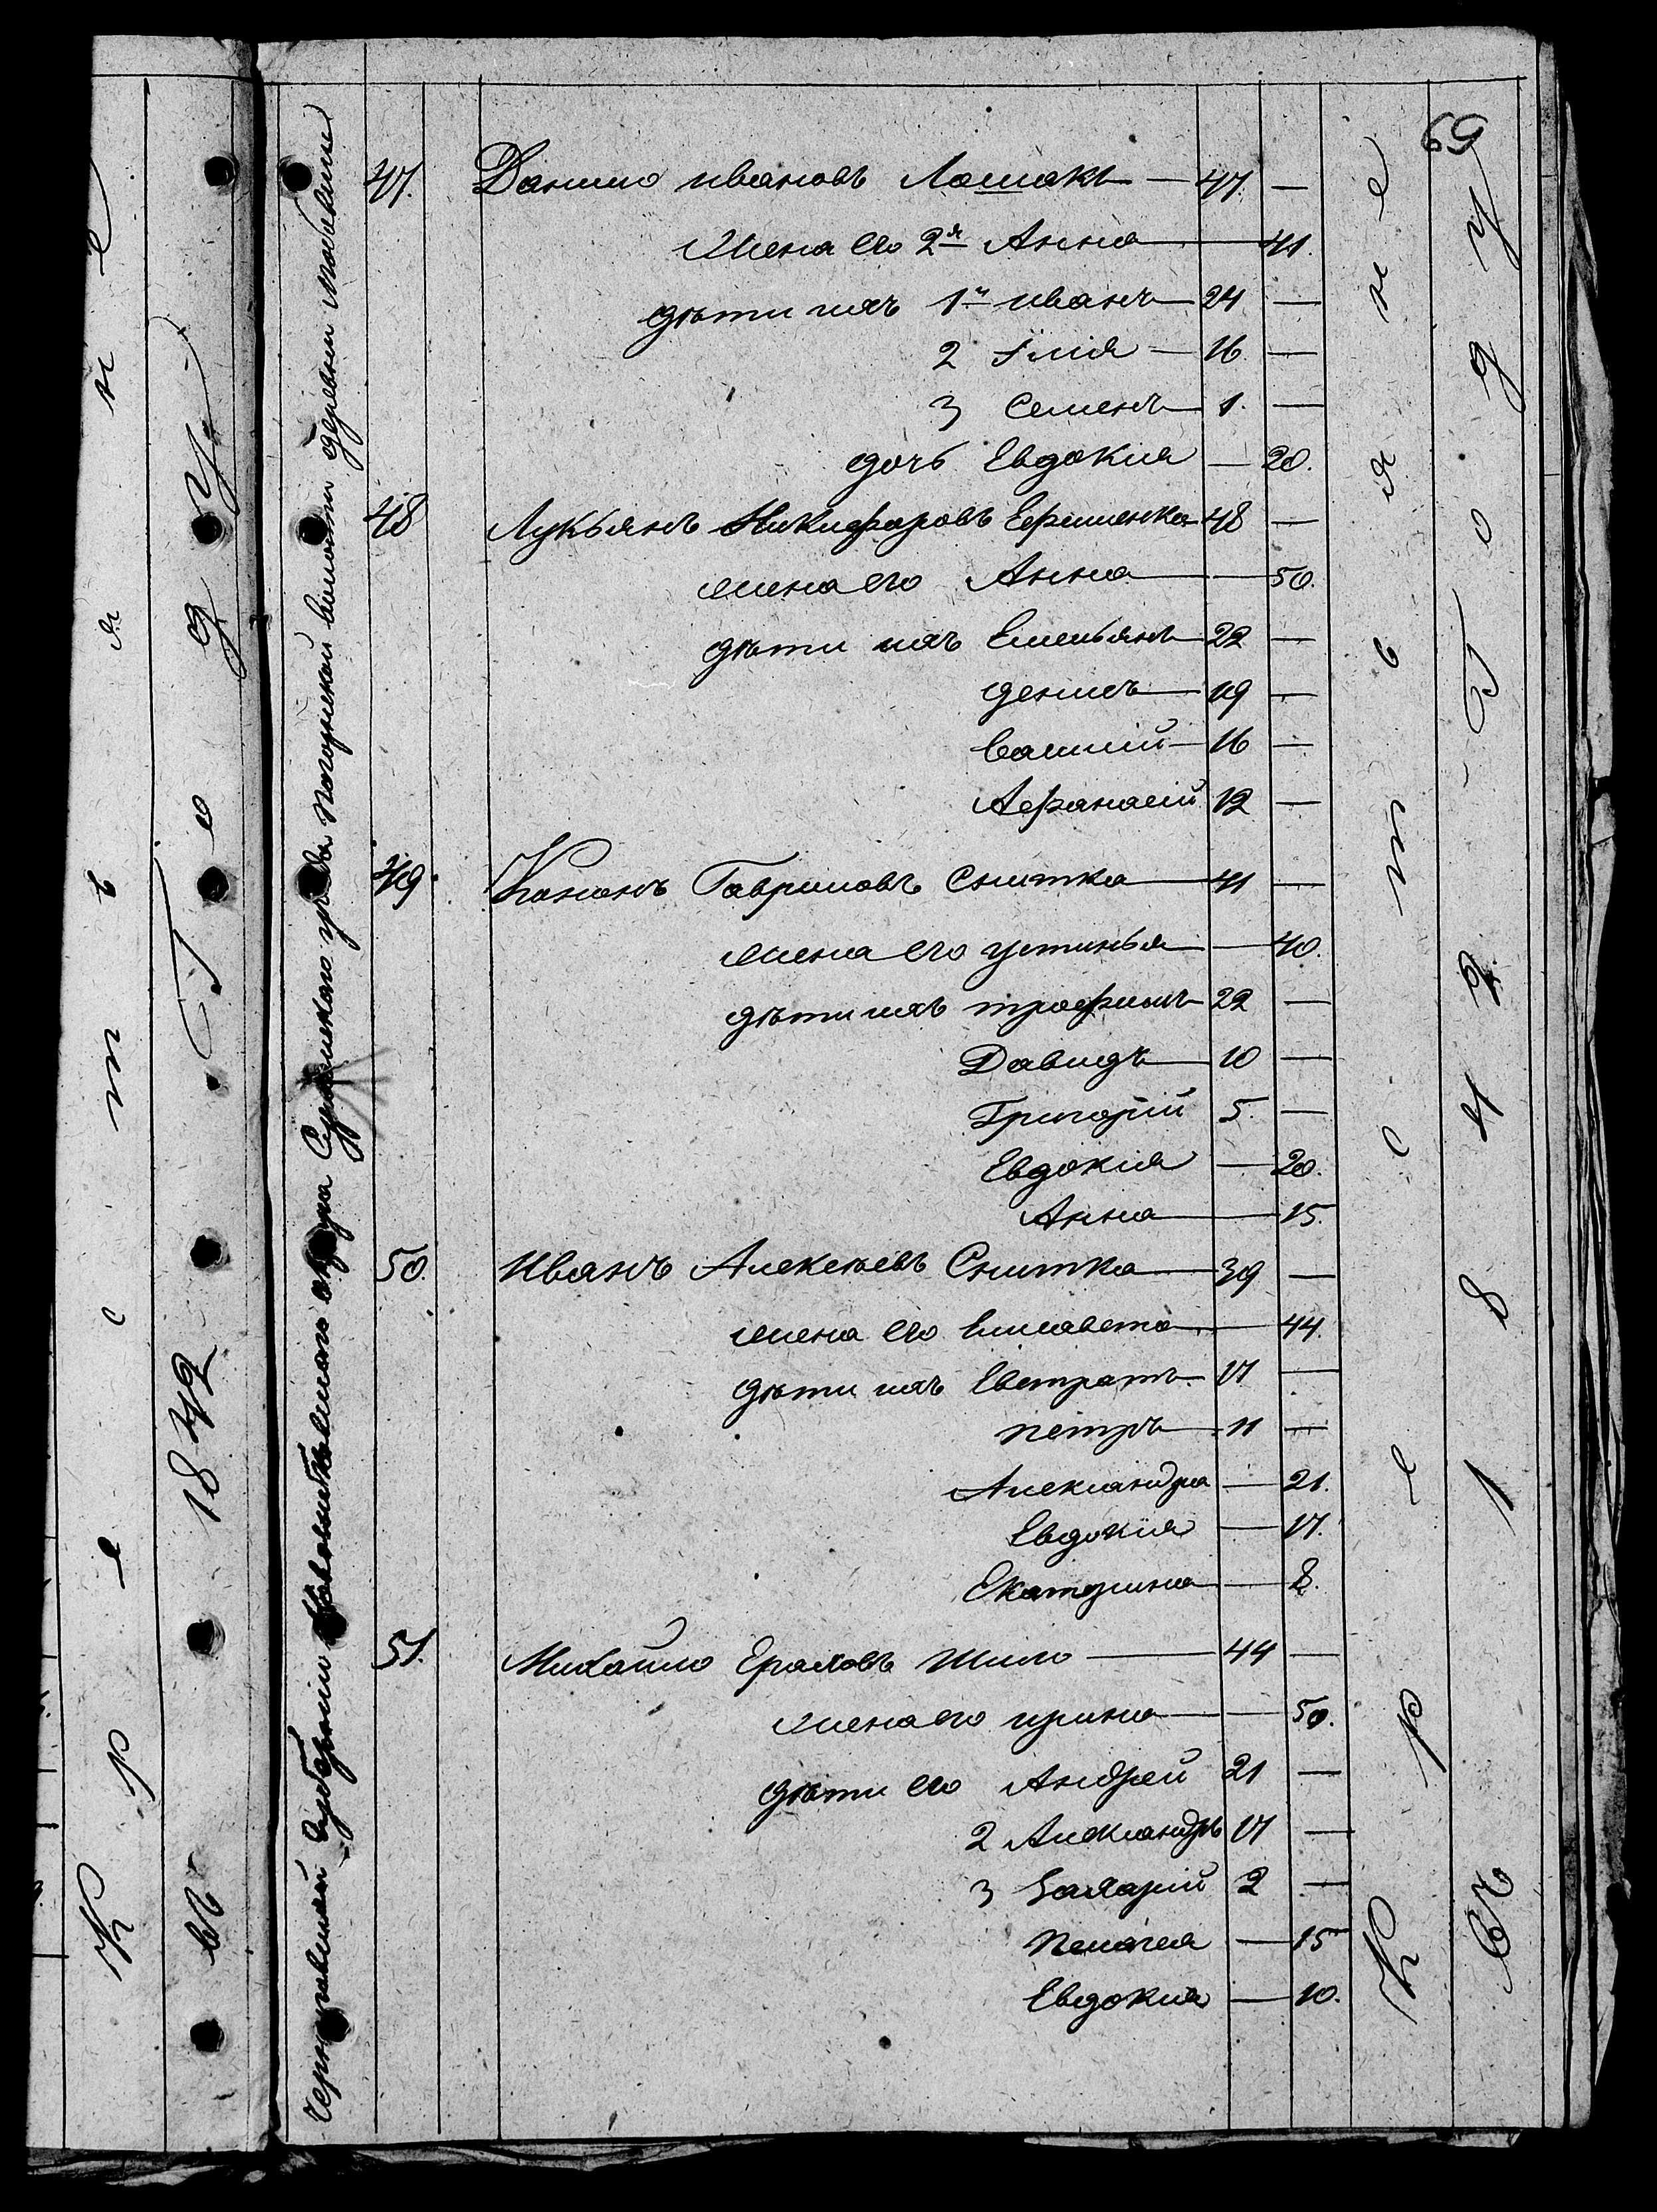 69
47. Данило ивановъ Лошакъ — 47. —
Жена его 2я Анна — 41.
дѣти ихъ 1й иванъ — 24 —
2 Илія — 16 —
3 Семенъ — 1. —
дочь Евдокия — 20.
48 Лукьянъ Никифоровъ Ефименко 48 —
жена его Анна — 50.
дѣти ихъ Емельянъ — 22 —
денисъ — 19 —
Василій — 16 —
Афанасій 12 —
49. Кононъ Гавриловъ Снитка — 41 —
жена его устинья — 40.
дѣти ихъ трофимъ — 22 —
Давидъ — 10 —
Григорій 5. —
Евдокия — 20.
Анна — 15.
50. Иванъ Алексѣевъ Снитка — 39 —
жена его Елисавета — 44.
дѣти ихъ Евстратъ — 17 —
петръ — 11 —
Александра — 21.
Евдокия — 17.
Екатерина — 8.
51. Михайло Шило — 44 —
жена его ирина — 50.
дѣти его Андрей 21 —
2 Александръ 17 —
3 Захарій 2 —
Пелагея — 15
Евдокия — 10.
Крестьяне
въ 1842 году
Крестьяне
въ 1842 году